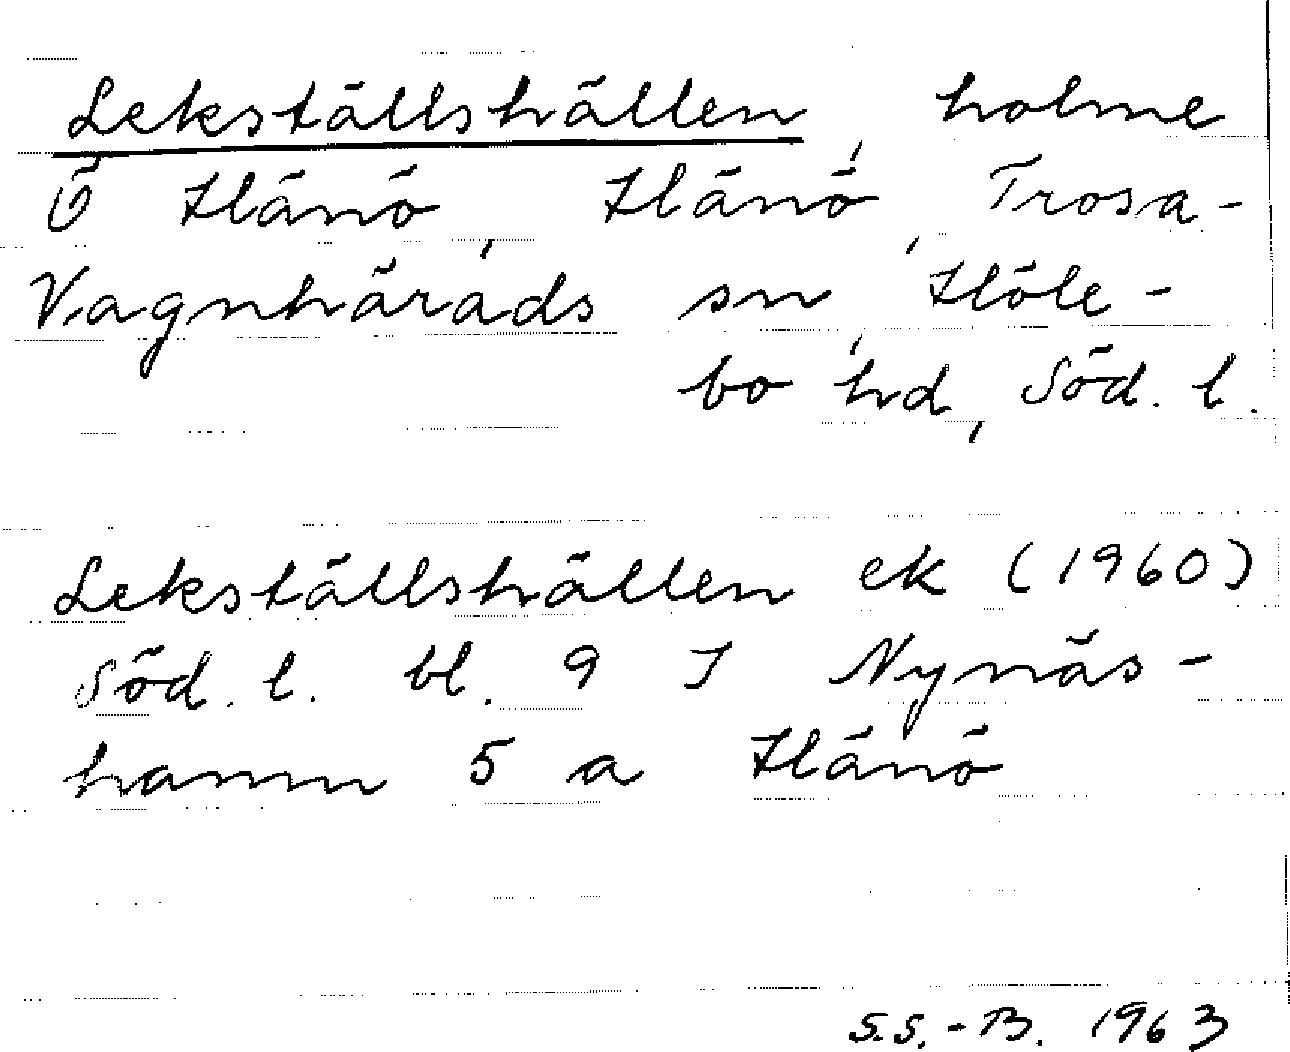 Lekställshällen, holme
Ö Hånö, Hånö, Trosa-
Vagnhärads sn, Höle-
bo hd, Söd. l.
Lekställshällen ek (1960)
Söd. l. bl. 9 J Nynäs-
hamn 5 a Hånö
S.S.-B. 1963